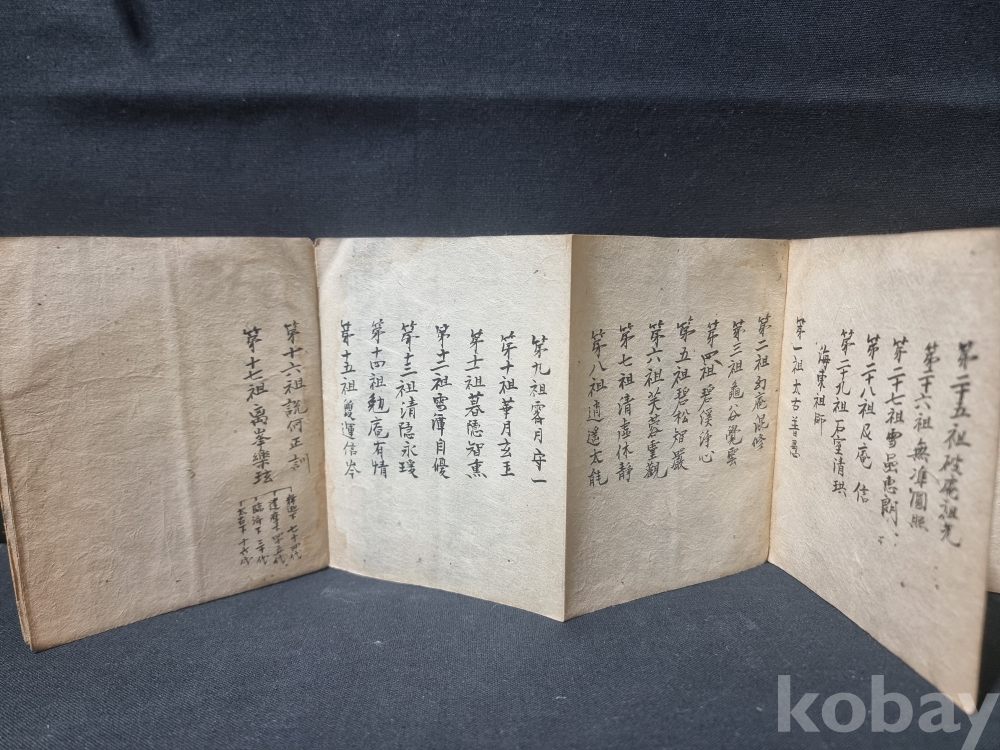 第二十五祖 破庵祖先
第二十六祖 無準圓照
第二十七祖 雪岩惠朗
第二十八祖 及庵 信
第二十九祖 石室清珙
海東祖師
第一祖 太古普愚
第二祖 幻庵混修
第三祖 龜谷覺雲
第四祖 碧溪淨心
第五祖 碧松智嚴
第六祖 芙蓉靈觀
第七祖 清虛休靜
第八祖 逍遙太能
第九祖 霽月守一
第十祖 華月玄玉
第十一祖 暮隱智熏
第十二祖 雪潭自優
第十三祖 清隱永璞
第十四祖 勉庵有情
第十五祖 雙運信岑
第十六祖 說何正訓
第十七祖 萬峯樂玹
釋迦下 七十四代
達摩下 四十五代
臨濟下 三十代
太古下 十七代
kobay